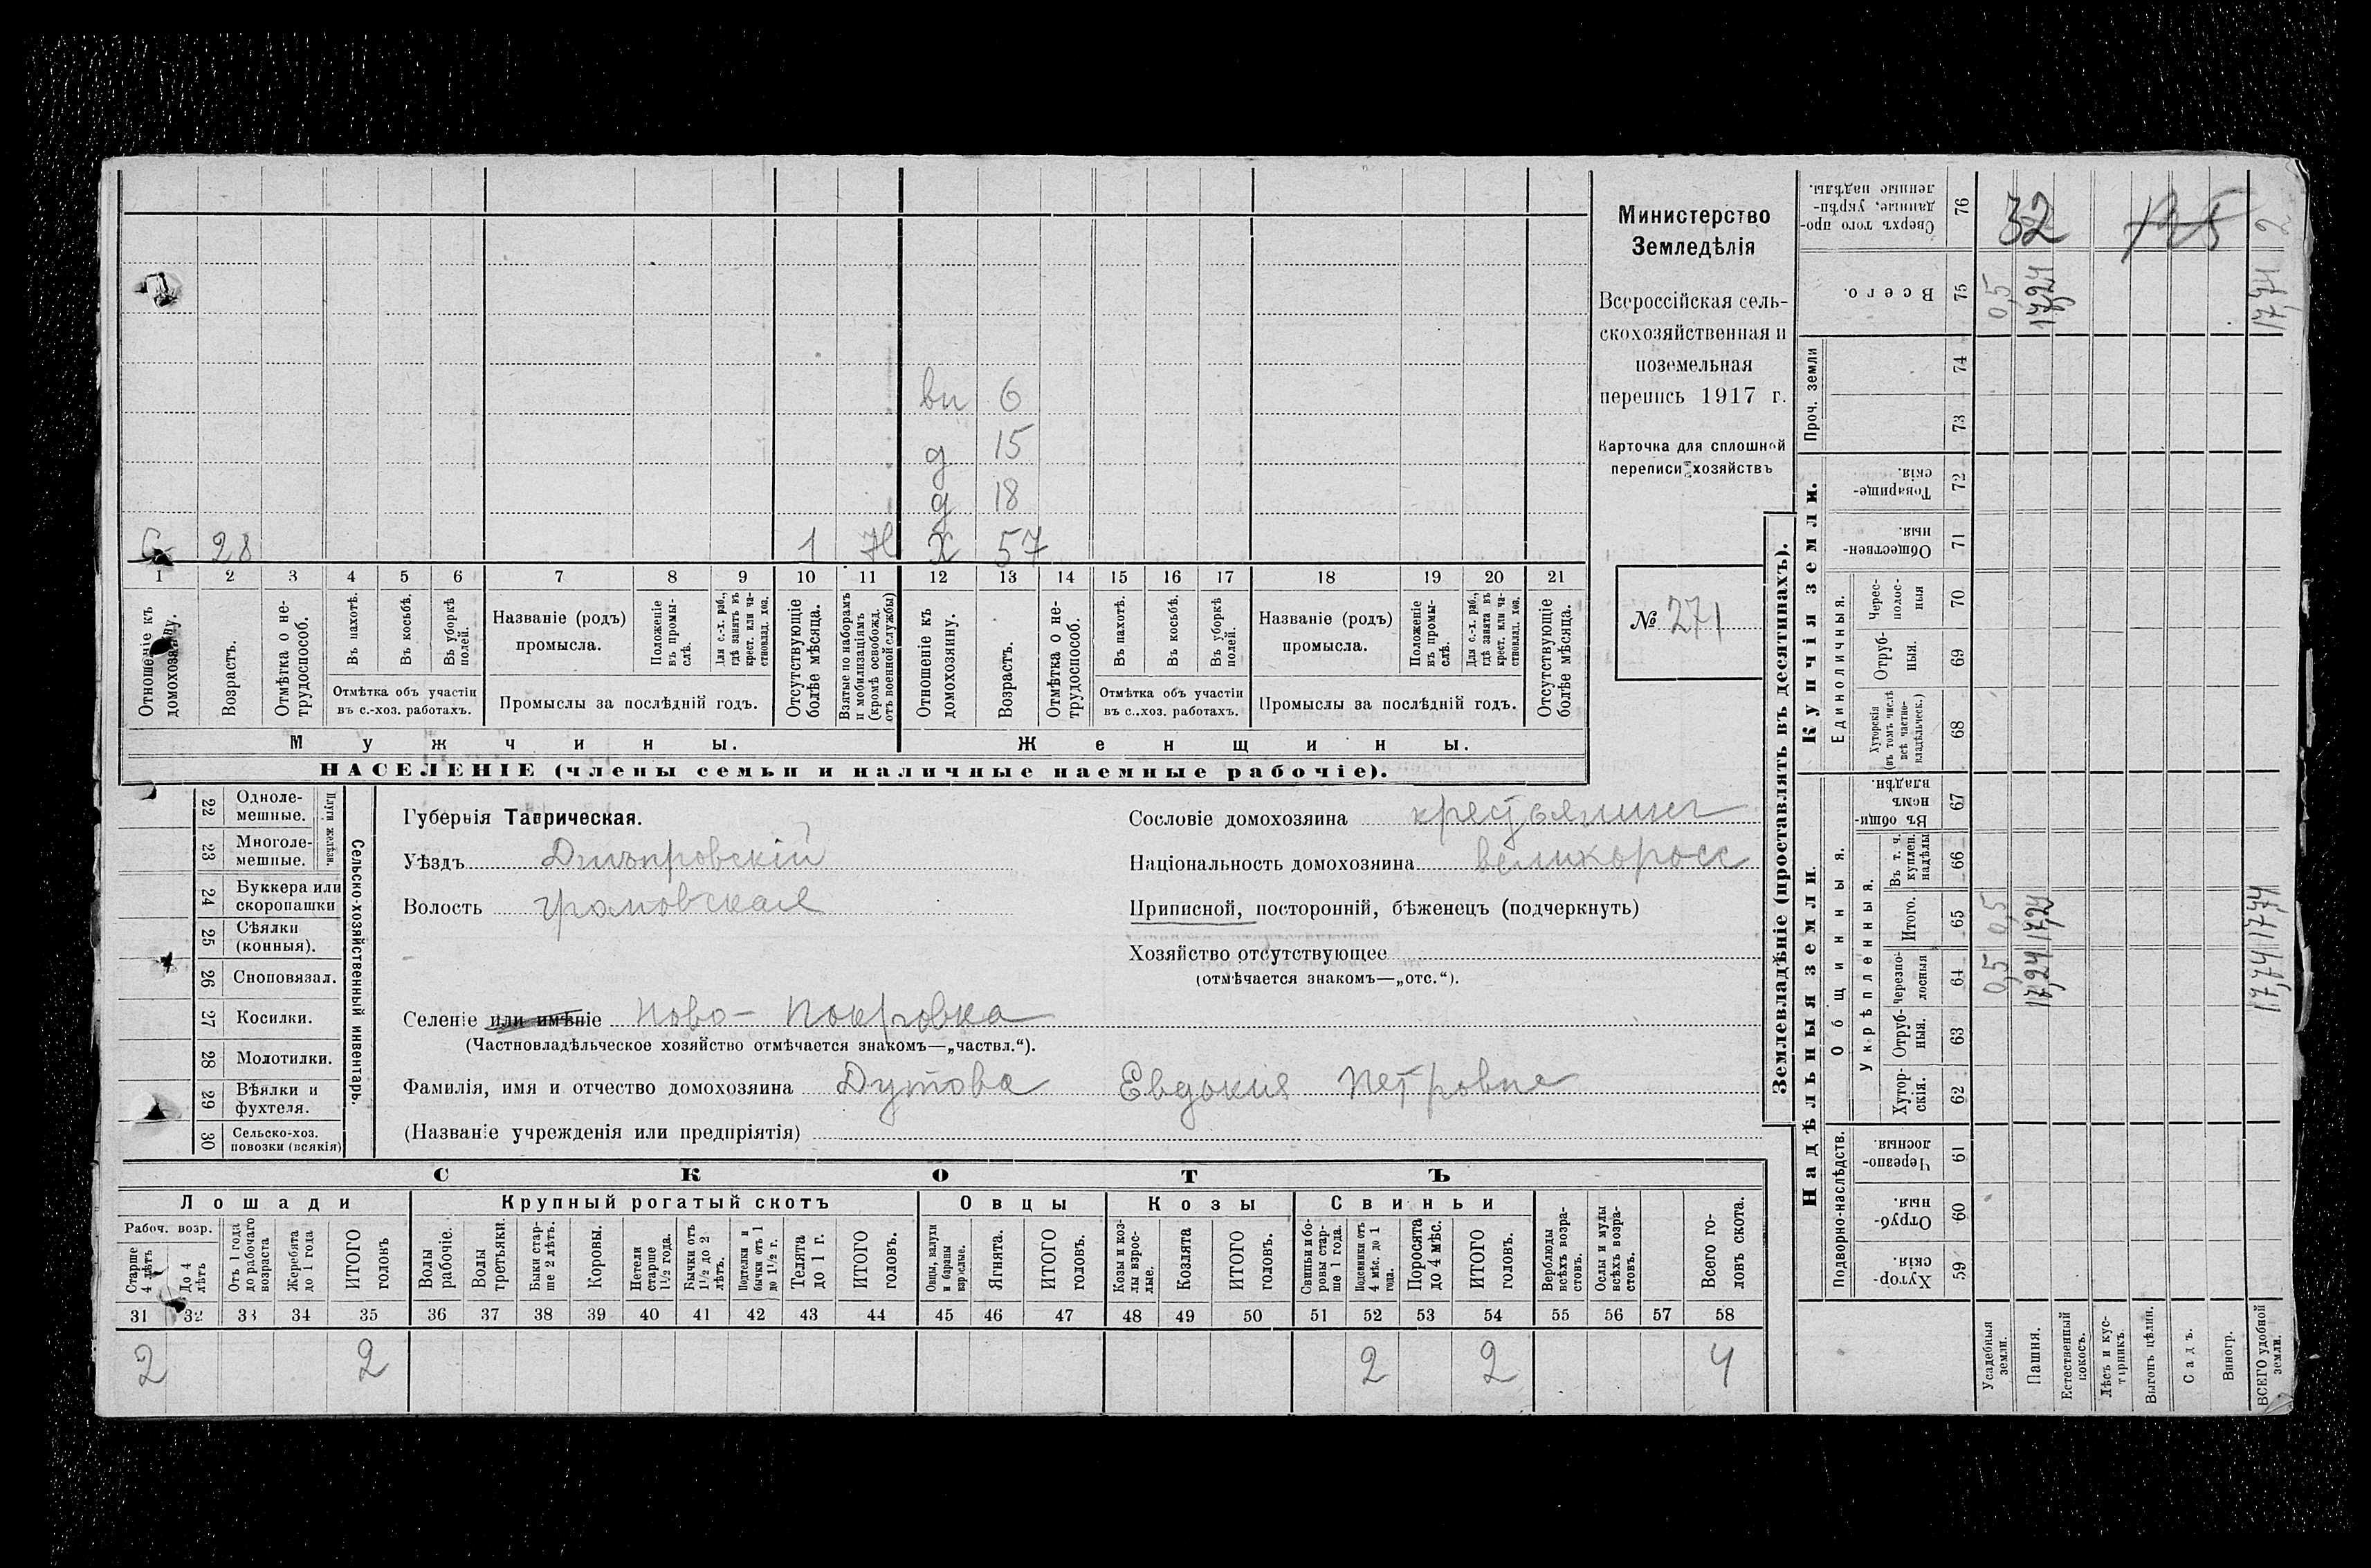 Министерство
Земледѣлія
Всероссійская сель-
скохозяйственная и
поземельная
перепись 1917 г.
Карточка для сплошной
переписи хозяйствъ
№ 271
вн 6
д 15
д 18
С 28 1 Х 57
1 2 3 4 5 6 7 8 9 10 11 12 13 14 15 16 17 18 19 20 21
Отношеніе къ домохозяину.
Возрастъ.
Отмѣтка о не-
трудоспособ.
Въ пахотѣ.
Въ косьбѣ.
Въ уборкѣ
полей.
Отмѣтка объ участіи
въ с.-хоз. работахъ.
Названіе (родъ)
промысла.
Положеніе
въ промы-
слѣ.
Для с.-х. раб.,
гдѣ занятъ въ
крест. или ча-
стновлад. хоз.
Промыслы за послѣдній годъ.
Отсутствующіе
болѣе мѣсяца.
Взятые по наборамъ
и мобилизаціямъ
(кромѣ освобожд.
отъ военной службы)
Отношеніе къ
домохозяину.
Возрастъ.
Отмѣтка о не-
трудоспособ.
Въ пахотѣ.
Въ косьбѣ.
Въ уборкѣ
полей.
Отмѣтка объ участіи
въ с.-хоз. работахъ.
Названіе (родъ)
промысла.
Положеніе
въ промы-
слѣ.
Для с.-х. раб.,
гдѣ занята въ
крест. или ча-
стновлад. хоз.
Промыслы за послѣдній годъ.
Отсутствующіе
болѣе мѣсяца.
Мужчины.
Женщины.
НАСЕЛЕНІЕ (члены семьи и наличные наемные рабочіе).
Сельско-хозяйственный инвентарь.
Плуги желѣзн.
22 Одноле-
мешные.
23 Многоле-
мешные.
24 Буккера или
скоропашки
25 Сѣялки
(конныя).
26 Сноповязал.
27 Косилки.
28 Молотилки.
29 Вѣялки и
фухтеля.
30 Сельско-хоз.
повозки (всякія)
Губернія Таврическая.
Уѣздъ Днѣпровскій
Волость громовская
Селеніе или имѣніе Ново-Покровка
(Частновладѣльческое хозяйство отмѣчается знакомъ—„частвл.“).
Фамилія, имя и отчество домохозяина Дутова Евдокия Петровна
(Названіе учрежденія или предпріятія)
Сословіе домохозяина крестьянинъ
Національность домохозяина великоросс
Приписной, посторонній, бѣженецъ (подчеркнуть)
Хозяйство отсутствующее
(отмѣчается знакомъ—„отс.“).
СКОТЪ
Лошади
Крупный рогатый скотъ
Овцы
Козы
Свиньи
Рабоч. возр.
Старше
4 лѣтъ
До 4
лѣтъ
Отъ 1 года
до рабочаго
возраста
Жеребята
до 1 года
ИТОГО
головъ
Волы
рабочіе.
Волы
третьяки.
Быки стар-
ше 2 лѣтъ.
Коровы.
Нетели
старше
1½ года.
Бычки отъ
1½ до 2
лѣтъ.
Подтелки и
бычки отъ 1
до 1½ г.
Телята
до 1 г.
ИТОГО
головъ.
Овцы, валухи
и бараны
взрослые.
Ягнята.
ИТОГО
головъ.
Козы и коз-
лы взрос-
лые.
Козлята
ИТОГО
головъ.
Свиньи и бо-
ровы стар-
ше 1 года.
Подсвинки отъ
4 мѣс. до 1
года.
Поросята
до 4 мѣс.
ИТОГО
головъ.
Верблюды
всѣхъ возра-
стовъ.
Ослы и мулы
всѣхъ возра-
стовъ.
Всего го-
ловъ скота.
31 32 33 34 35 36 37 38 39 40 41 42 43 44 45 46 47 48 49 50 51 52 53 54 55 56 57 58
2 2 2 2 4
Землевладѣніе (проставлять въ десятинахъ).
Надѣльныя земли.
Купчія земли.
Проч. земли
Подворно-наслѣдств.
Общинныя.
Укрѣпленныя.
Единоличныя.
Хутор-
скія. 59
Отруб-
ныя. 60
Черезпо-
лосныя. 61
Хутор-
скія. 62
Отруб-
ныя. 63
Черезпо-
лосныя 64
Итого. 65
Въ т. ч.
куплен.
надѣлы 66
Въ общин-
номъ
владѣн. 67
Хуторскія
(въ томъ числѣ
всѣ частно-
владѣльческ.) 68
Отруб-
ныя. 69
Черес-
полос-
ныя 70
Обществен-
ныя. 71
Товарище-
скія. 72
73
74
Всего. 75
Сверхъ того про-
данные, укрѣп-
ленные надѣлы. 76
Усадебныя
земли. 0,5 0,5 0,5
Пашня. 17,24 17,24 17,24
Естественный
покосъ.
Лѣсъ и кус-
тарникъ.
Выгонъ цѣлин.
Садъ.
Виногр.
ВСЕГО удобной
земли. 17,74 17,74 17,74 2
32
125